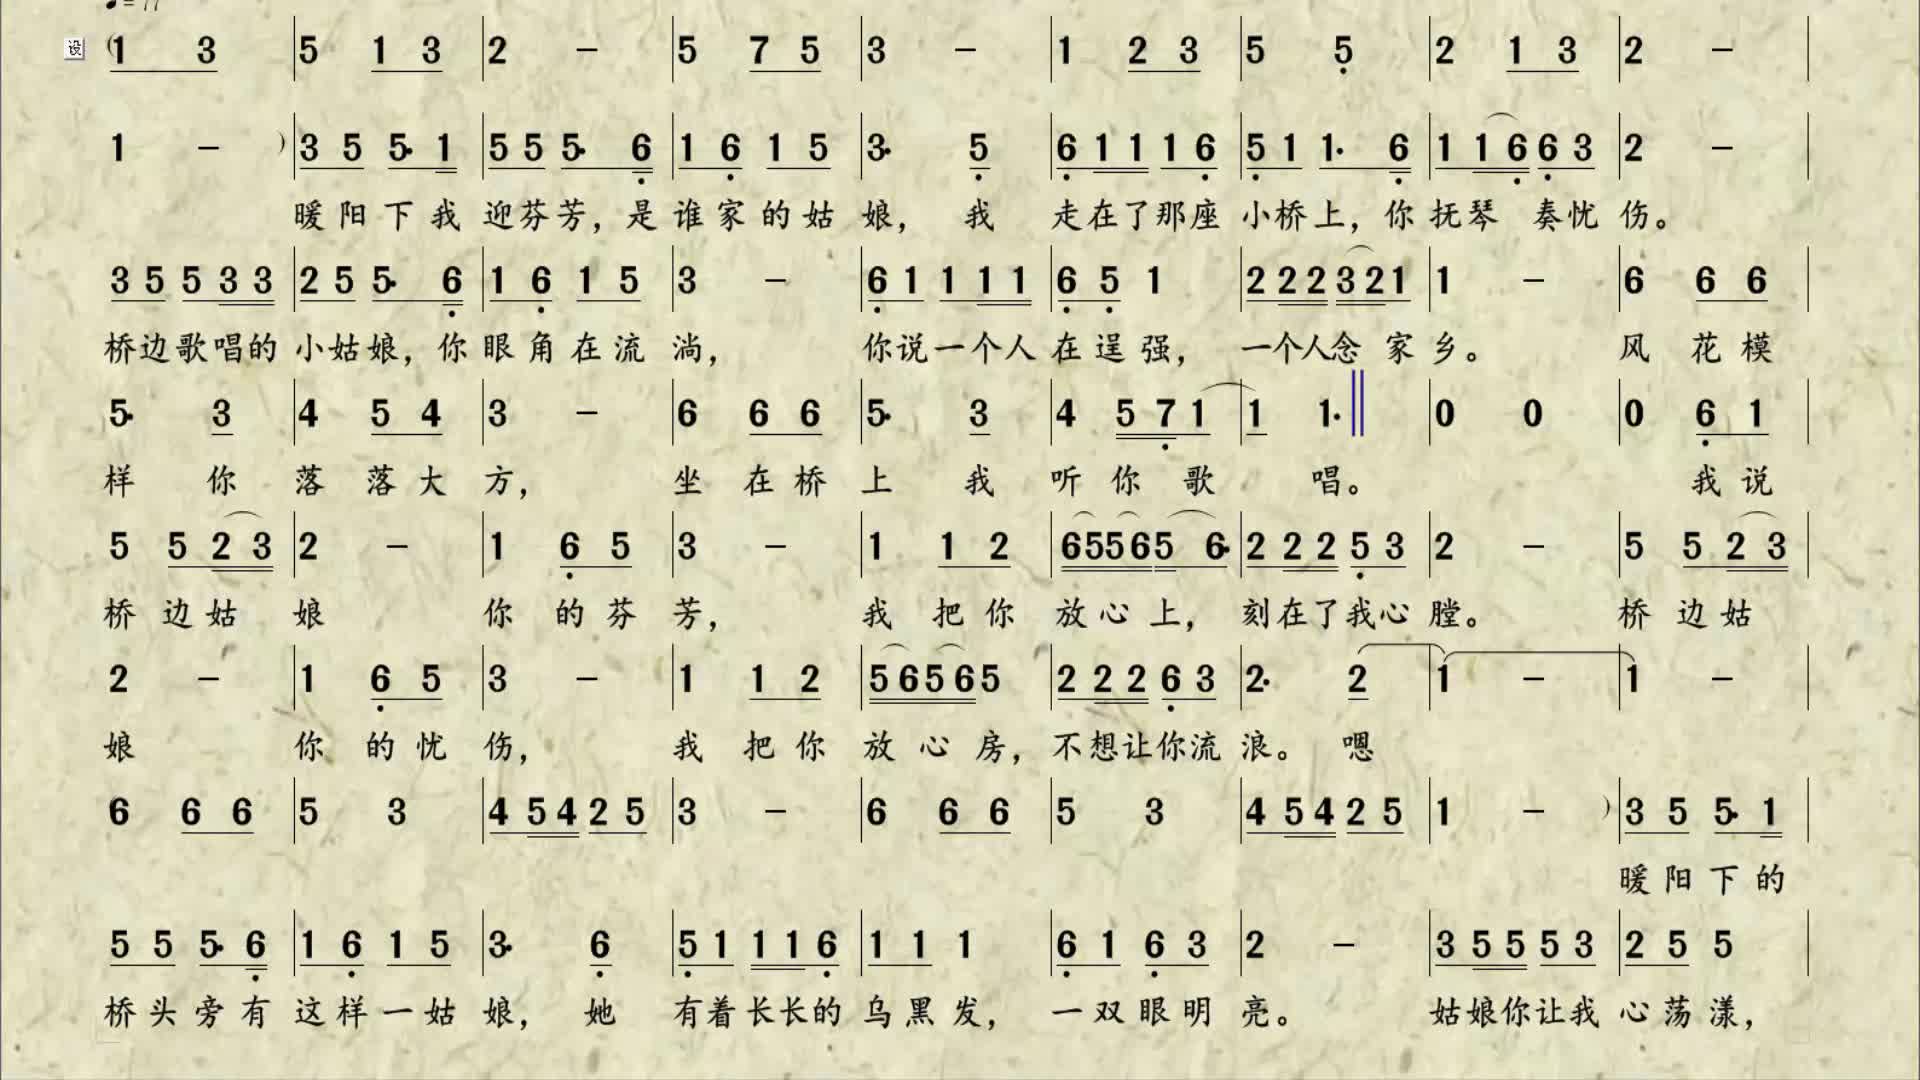 设 (1 3 | 5 1 3 | 2 – | 5 7 5 | 3 – | 1 2 3 | 5 5 | 2 1 3 | 2 – |
1 – ) | 3 5 5· 1 | 5 5 5· 6 | 1 6 1 5 | 3· 5 | 6 1 1 1 6 | 5 1 1· 6 | 1 1 6 6 3 | 2 – |
暖阳下我 迎芬芳，是 谁家的姑 娘， 我 走在了那座 小桥上，你 抚琴 奏忧 伤。
3 5 5 3 3 | 2 5 5· 6 | 1 6 1 5 | 3 – | 6 1 1 1 1 | 6 5 1 | 2 2 2 3 2 1 | 1 – | 6 6 6 |
桥边歌唱的 小姑娘，你 眼角在流 淌， 你说一个人 在逞强， 一个人念家 乡。 风 花模
5· 3 | 4 5 4 | 3 – | 6 6 6 | 5· 3 | 4 5 7 1 | 1 1· || 0 0 | 0 6 1 |
样 你 落 落大 方， 坐 在桥 上 我 听 你 歌 唱。 我说
5 5 2 3 | 2 – | 1 6 5 | 3 – | 1 1 2 | 6 5 5 6 5 6· | 2 2 2 5 3 | 2 – | 5 5 2 3 |
桥 边姑 娘 你 的芬 芳， 我 把你 放心上， 刻在了我心 膛。 桥 边姑
2 – | 1 6 5 | 3 – | 1 1 2 | 5 6 5 6 5 | 2 2 2 6 3 | 2· 2 | 1 – | 1 – |
娘 你 的忧 伤， 我 把你 放心房， 不想让你流 浪。 嗯
6 6 6 | 5 3 | 4 5 4 2 5 | 3 – | 6 6 6 | 5 3 | 4 5 4 2 5 | 1 – ) | 3 5 5· 1 |
暖阳下的
5 5 5· 6 | 1 6 1 5 | 3· 6 | 5 1 1 1 6 | 1 1 1 | 6 1 6 3 | 2 – | 3 5 5 5 3 | 2 5 5 |
桥头旁有 这样一姑 娘， 她 有着长长的 乌黑发， 一双眼明 亮。 姑娘你让我 心荡漾，